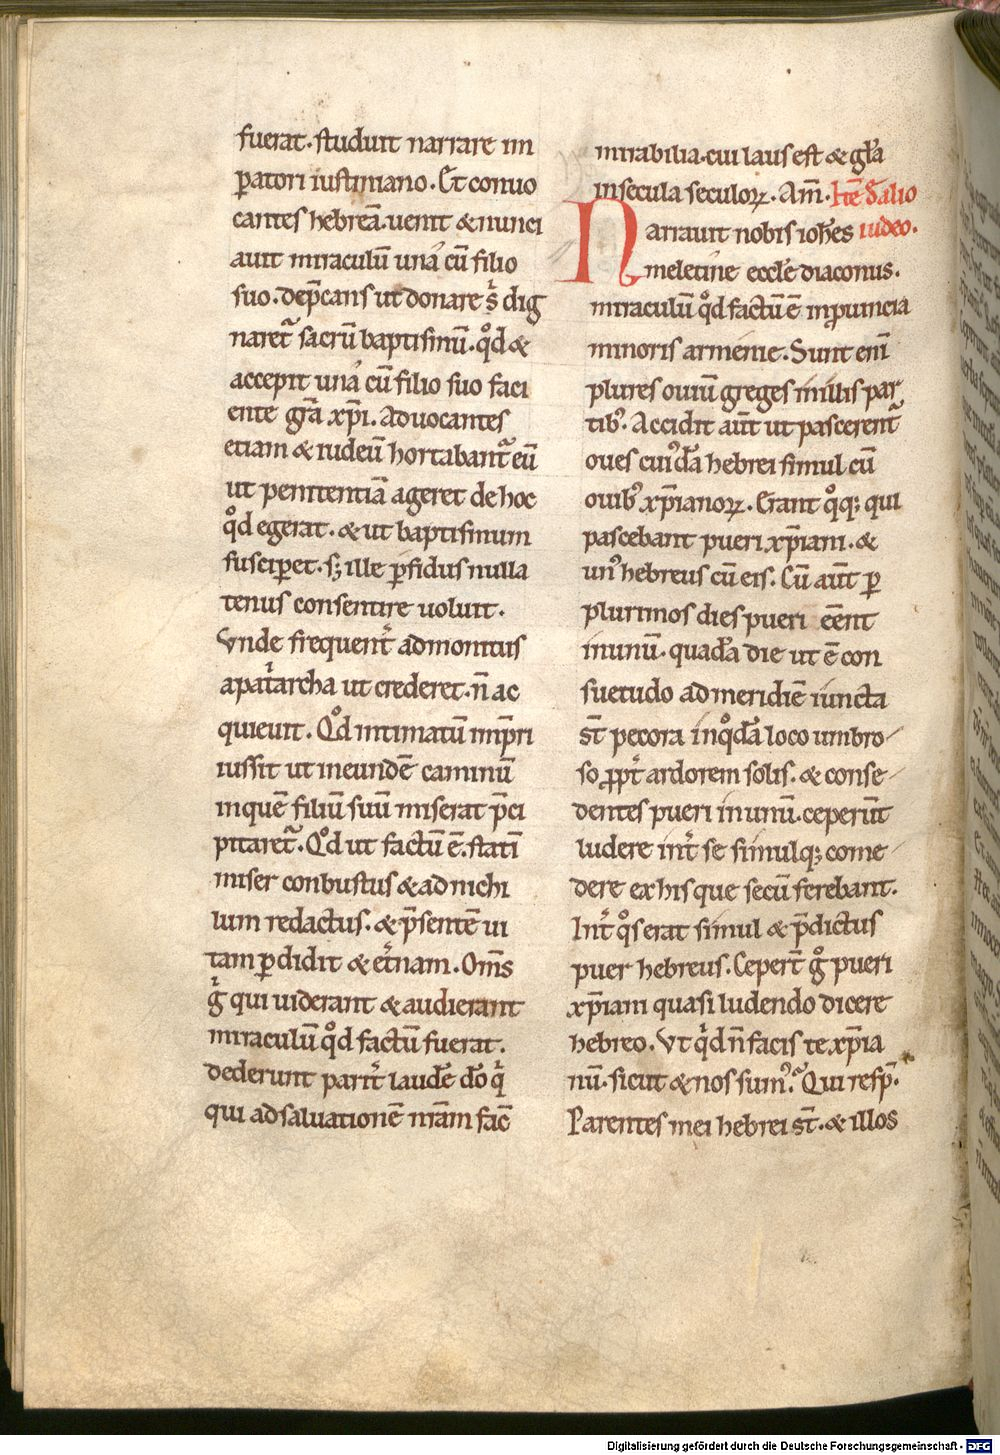 fuerat. studuit narrare im
ꝑatori iustiniano. Et conuo
cantes hebreā. uenit & nunci
auit miraculū una cū filio
suo. dep̄cans ut donare s̄ dig
naret᷑ sacrū baptismū. qd̊ &
accepit una cū filio suo faci
ente gr̄a xp̄i. Aduocantes
etiam & iudeū hortabant᷑ eū
ut penitentiā ageret de hoc
qd̊ egerat. & ut baptismum
susciꝑet. sꝫ ille ꝑfidus nulla
tenus consentire uoluit.
Vnde frequent̄ admonitus
a pat̄archa ut crederet. n̄ ac
quieuit. Qd̊ intimatū imp̄ri
iussit ut in eundē caminū
in quē filiū suū miserat p̄ci
pitaret᷑. Qd̊ ut factū ē. statī
miser conbustus & ad nichi
lum redactus. & p̄sentē ui
tam ꝑdidit & et̄nam. Om̄s
g̊ qui uiderant & audierant
miraculū qd̊ factū fuerat.
dederunt parit̄ laudē dō q̄
qui ad saluationē nr̄am fac̄
mirabilia. cui laus est & gl̄a
in secula seculoꝝ. Am̄. Itē de alio
iudeo.
Narrauit nobis ioh̄es
meletine eccl̄e diaconus.
miraculū qd̊ factū ē in ꝓuincia
minoris armenie. Sunt eni̅
plures ouiū greges in illis par
tibꝰ. Accidit aūt ut pascerent᷑
oues cuiꝰdā hebrei simul cū
ouibꝰ xp̄ianoꝝ. Erant q̊qꝫ qui
pascebant pueri xp̄iani. &
unꝰ hebreus cū eis. Cū aūt ꝑ
plurimos dies pueri eēnt
in unū. quadā die ut ē con
suetudo ad meridiē iuncta
st̄ pecora in qd̊ā loco umbro
so ꝓpt̄ ardorem solis. & conse
dentes pueri in unū. ceperūt
ludere int̄ se simulqꝫ come
dere ex his que secū ferebant.
Int̄ q̊s erat simul & p̄dictus
puer hebreus. Ceper̄t g̊ pueri
xp̄iani quasi ludendo dicere
hebreo. Vt qd̄ n̄ facis te xp̄ia
nū. sicut & nos sumꝰ? Qui resp̄.
Parentes mei hebrei st̄. & illos
Digitalisierung gefördert durch die Deutsche Forschungsgemeinschaft - DFG